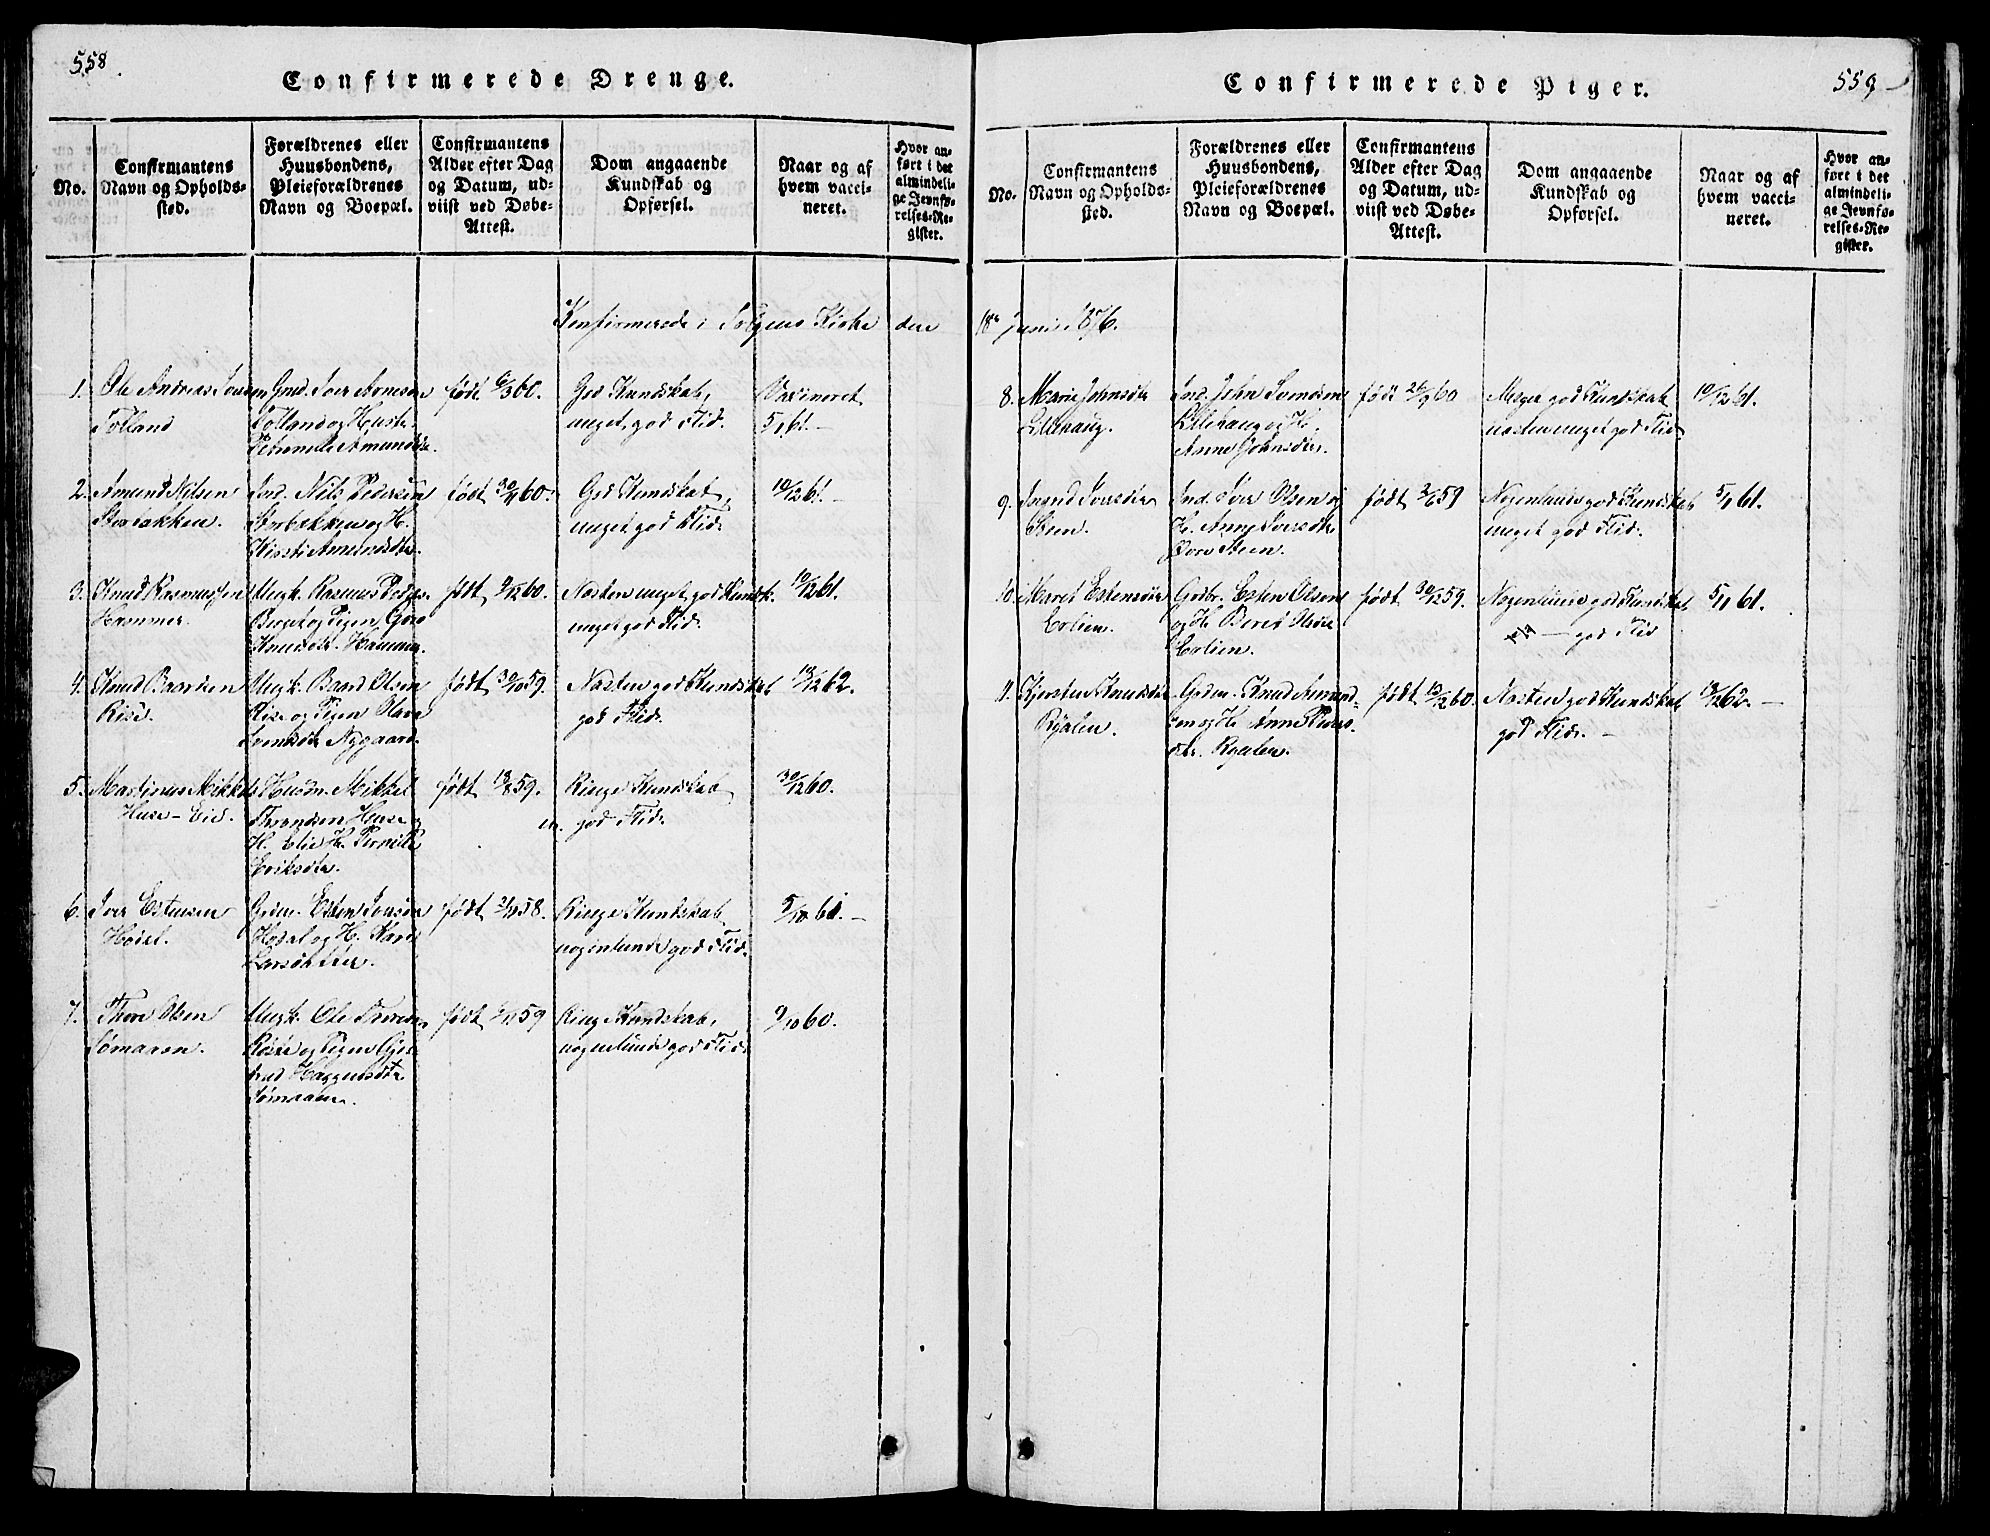 558
Confirmerede Drenge.
No.
Confirmantens
Navn og Opholds-
sted.
Forældrenes eller
Huusbondens,
Pleieforældrenes
Navn og Boepæl.
Confirmantens
Alder efter Dag
og Datum, ud-
viist ved Døbe-
Attest.
Dom angaaende
Kundskab og
Opførsel.
Naar og af
hvem vacci-
neret.
Hvor an-
ført i det
almindeli-
ge Jevnfø-
relses-Re-
gister.
Konfirmerede i Tolgens Kirke den
1. Ole Andreas
Tolland
Gmd. Iver
Tolland og Hustr.
Petronelle Amundsdtr.
født 60.
God Kundskab,
meget god Flid.
Vaxineret
5/1 61.
2. Amund Nilsen
Storbakken.
Ind. Nils Pedersen
Storbakken og H.
Kirsti Amundsdtr.
født 60.
God Kundskab,
meget god Flid.
10/12 61.
3. Knud Rasmussen
Hammer.
Ungk. Rasmus Peders.
Berget og Pigen Guro
Knudsdtr. Hammer.
født 9/12 60.
Næsten meget god Kundsk.
meget god Flid.
10/12 61.
4. Knud Baardsen
Rise.
Ungk. Baard Olsen
Rise og Pigen Olava
Svendsdtr Nygaard.
født 30/10 59.
Næsten god Kundskab
god Flid.
10/12 62.
5. Martinus Mikkels
Huse - Eid.
Husm. Mikkel
Throndsen Huse
H. Elie K. Pernille
Eriksdtr.
født 59.
en.
Ringe Kundskab
god Flid.
30/12 60.
6. Iver Estensen
Hodal.
Gdm. Esten Ionsen
Hodal og H. Kari
Larsdatter.
født 58.
Ringe Kundskab
nogenlunde god Flid.
5/10 61.
7. Thore Olsen
Sømaaen.
Ungk. Ole Thoresen
Røste og Pigen Gjer-
trud Haagensdtr
Sømaaen.
født 59
Ringe Kundskab,
nogenlunde god Flid.
9/10 60.
559
Confirmerede Piger.
No.
Confirmantens
Navn og Opholds-
sted.
Forældrenes eller
Huusbondens,
Pleieforældrenes
Navn og Boepæl.
Confirmantens
Alder efter Dag
og Datum, ud-
viist ved Døbe-
Attest.
Dom angaaende
Kundskab og
Opførsel.
Naar og af
hvem vacci-
neret.
Hvor an-
ført i det
almindeli-
ge Jevnfø-
relses-Re-
gister.
18de Juni 1876.
8. Marie Johnsdtr
Lillehaug.
Ind. John Svendsen
Lillehaug og H.
Anne Johnsdtr.
født 26/9 60
Meget god Kundskab
næsten meget god Flid
10/12 61.
9. Ingrid Iversdtr
Steen.
Ind. Iver Olsen og
H. Anne Iversdtr
Øvre Steen.
født 59
Nogenlunde god Kundskab
meget god Flid.
5/1 61.
10. Maret Estensdtr
Erlien.
Gbr. Esten Olsen
og H. Beret Olsdtr
Erlien.
født 30/12 59.
Nogenlunde god Kundskab,
— god Flid
5/11 61.
11. Kjersten Knudsdtr
Ryalen.
Gdm. Knud Amund-
sen og H. Anne Peders-
dtr. Ryalen.
født 12/2 60.
Næsten god Kundskab
god Flid. —
10/12 62. —